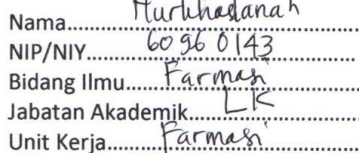 Nama.......Nurkhasanah
NIP/NIY.......60960143
Bidang Ilmu.......Farmasi
Jabatan Akademik.......LK
Unit Kerja.......Farmasi